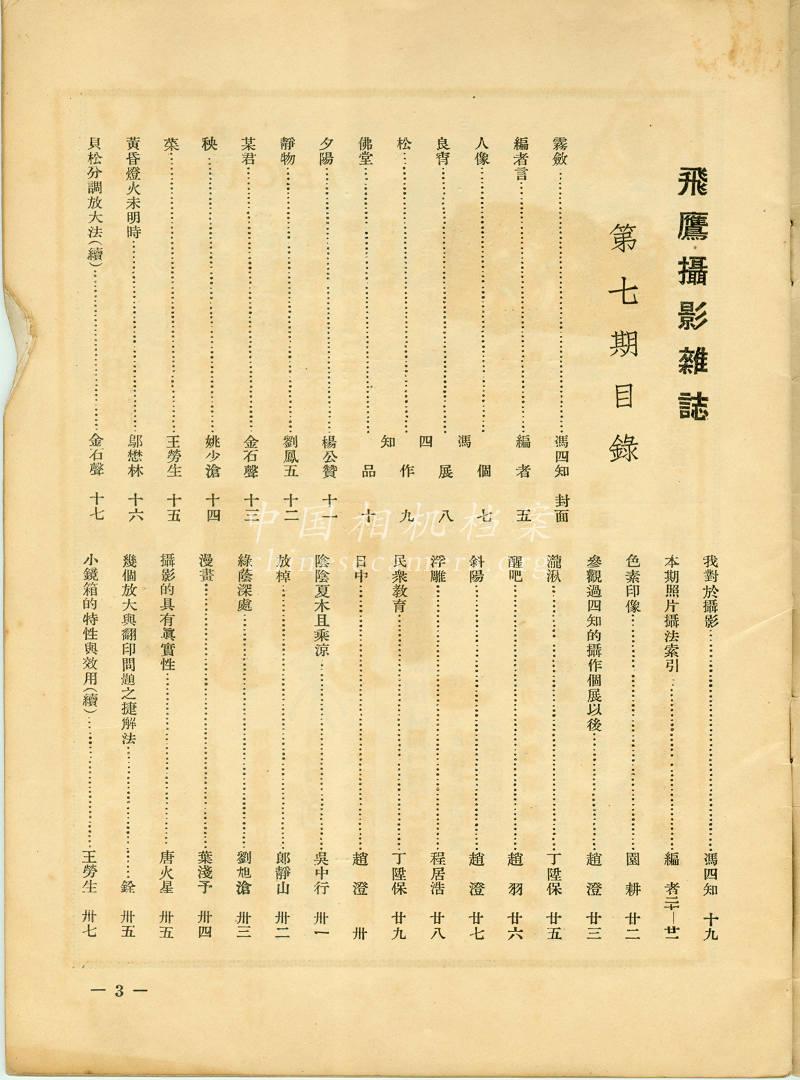 飛鷹攝影雜誌
第七期目錄
霧斂……馮四知 封面
編者言……編者 五
人像……七
良宵……八
松……九
佛堂……十
馮四知個展作品
夕陽……楊公贊 十一
靜物……劉鳳五 十二
某君……金石聲 十三
秧……姚少滄 十四
菜……王勞生 十五
黃昏燈火未明時……鄔懋林 十六
貝松分調放大法(續)……金石聲 十七
我對於攝影……馮四知 十九
本期照片攝法索引……編者 二十—廿一
色素印像……園耕 廿二
參觀過四知的攝作個展以後……趙澄 廿三
瀧湫……丁陞保 廿五
醒吧……趙羽 廿六
斜陽……趙澄 廿七
浮雕……程居浩 廿八
民衆教育……丁陞保 廿九
日中……趙澄 卅
陰陰夏木且乘涼……吳中行 卅一
放棹……郎靜山 卅二
綠蔭深處……劉旭滄 卅三
漫畫……葉淺予 卅四
攝影的具有眞實性……唐火星 卅五
幾個放大與翻印問題之捷解法……銓 卅五
小鏡箱的特性與效用(續)……王勞生 卅七
— 3 —
中国相机档案
chinesecamera.org